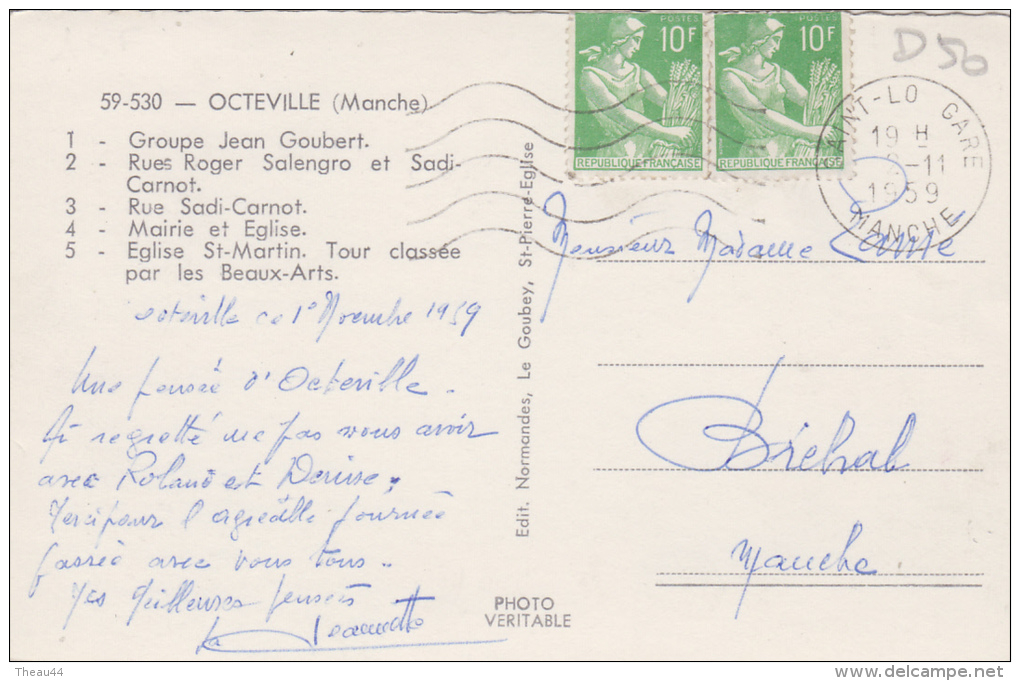 59-530 — OCTEVILLE (Manche)
1 - Groupe Jean Goubert.
2 - Rues Roger Salengro et Sadi-
Carnot.
3 - Rue Sadi-Carnot.
4 - Mairie et Eglise.
5 - Eglise St-Martin. Tour classée
par les Beaux-Arts.
octeville ce 1er Novembre 1959
Une pensée d'Octeville.
Ai regretté ne pas vous avoir
avec Roland et Denise,
Merci pour l'agréable journée
passée avec vous tous.
Mes Meilleures pensées
Jeannette
Edit. Normandes, Le Goubey, St-Pierre-Eglise
PHOTO
VERITABLE
POSTES
10F
REPUBLIQUE FRANÇAISE
POSTES
10F
REPUBLIQUE FRANÇAISE
D50
SAINT-LO GARE
19 H
2-11
1959
MANCHE
Monsieur Madame
Bréhal
Manche
Theau44
www.delcampe.net